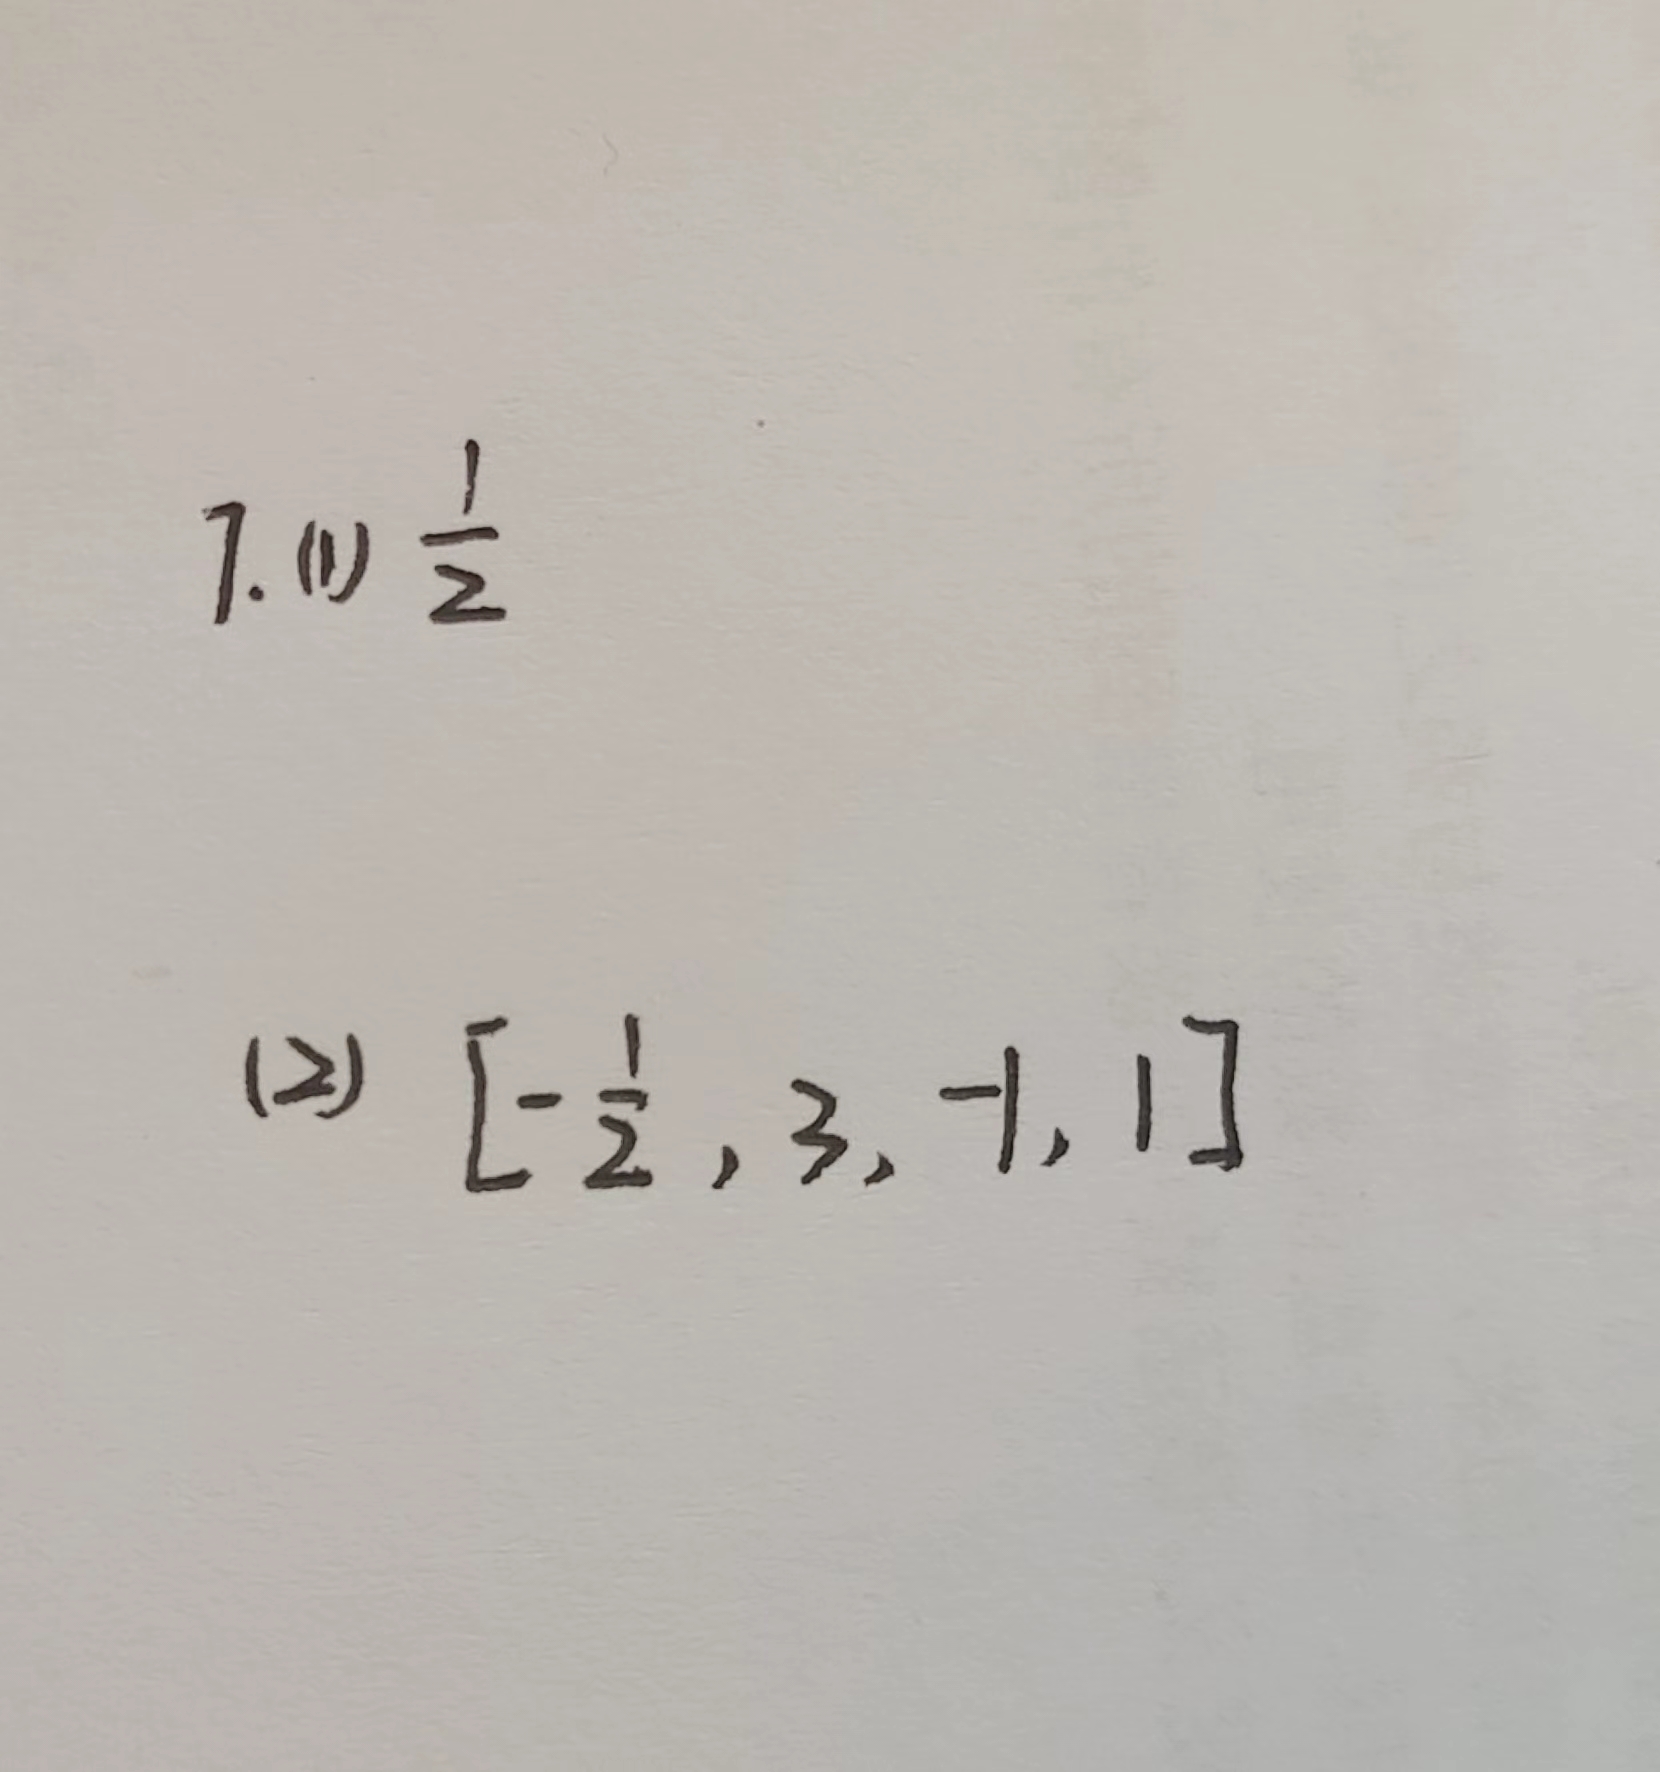 7. (1) 1/2
(2) [-1/2, 3, -1, 1]